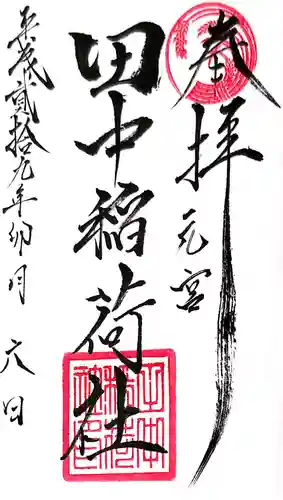 奉拝
元宮
田中稲荷社
平成貮拾九年卯月六日